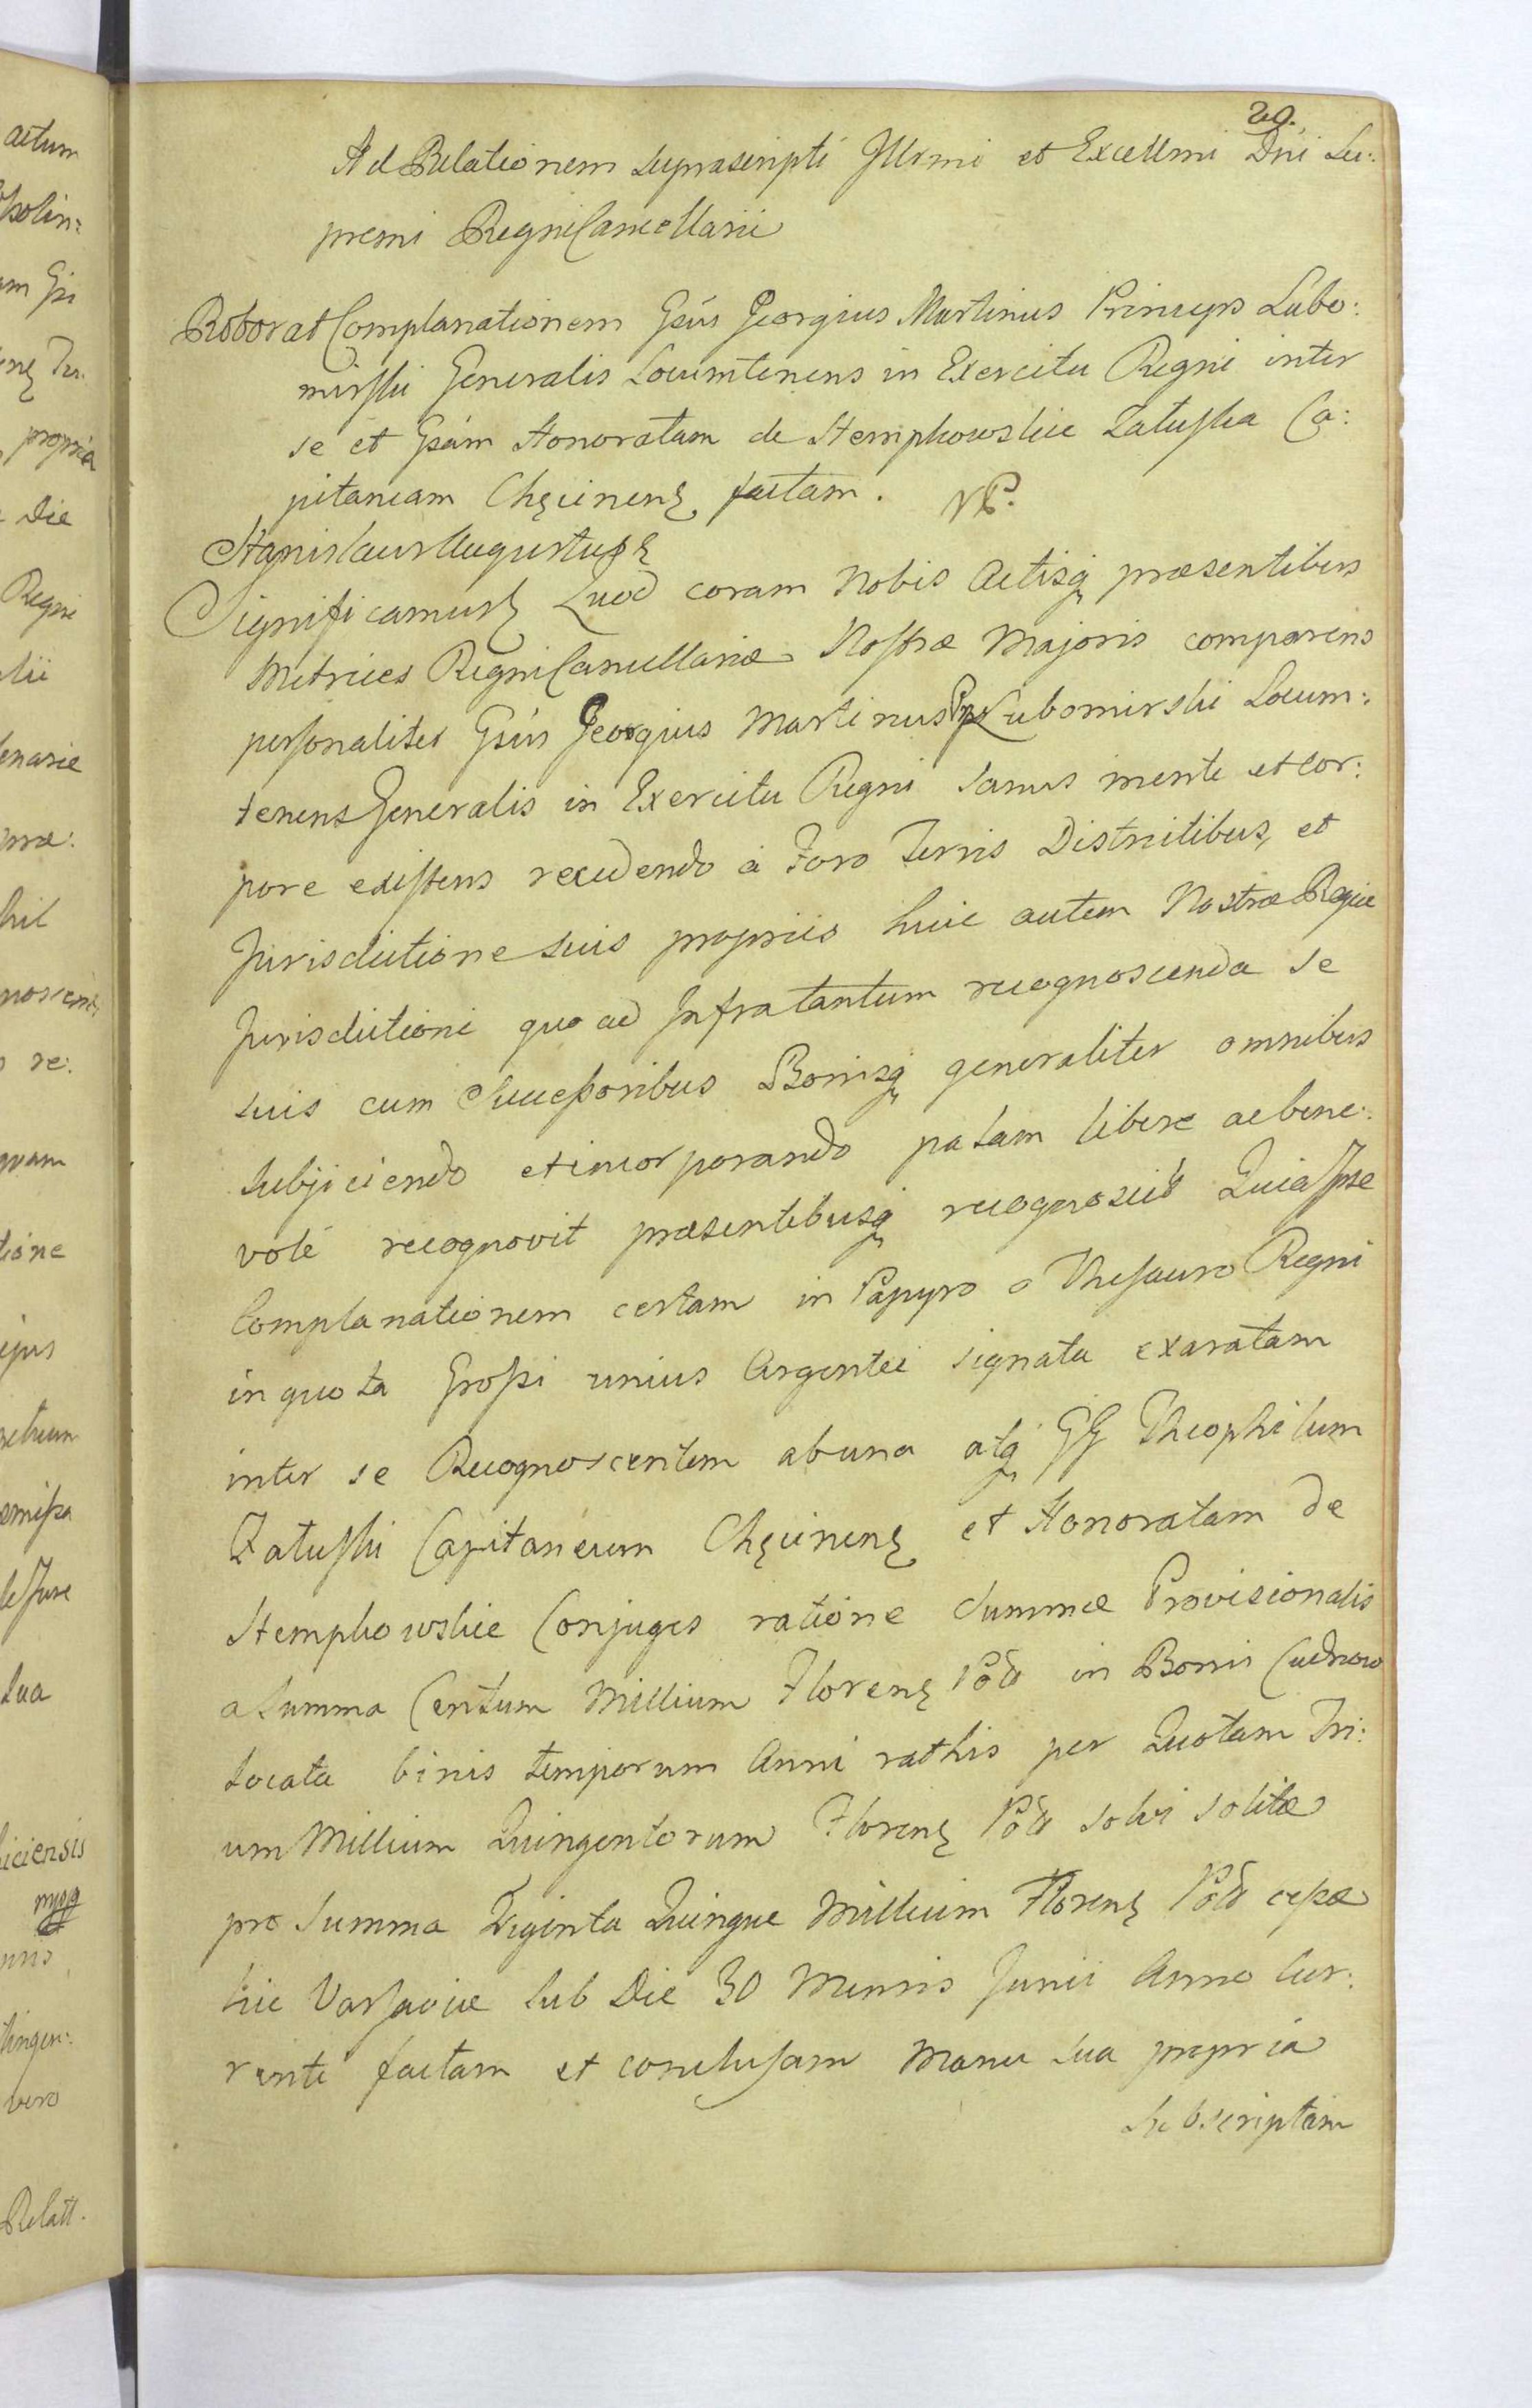 20.
Ad Relationem suprascripti Illrmi et Excellmi Dni Su:
premi Regni Cancellarii
Roborat Complanationem Gsus Georgius Martinus Princeps Lubo:
mirski Generalis Locumtenens in Exercitu Regni inter
se et Gsam Honoratam de Stempkowskie Załuska Ca:
pitaneam Chęcinenę factam.
Stanislaus Augustus ę
Significamus ę Quod coram Nobis Actisq praesentibus
Metrices Regni Cancellariae Nostrae Majoris comparens
personaliter Gsus Georgius Martinus Pps Lubomirski Locum:
tenens Generalis in Exercitu Regni sanus mente et cor:
pore existens recedendo à Foro Terris Districtibus, et
Jurisdictione suis propriis huic autem Nostrae Regiae
Jurisdictioni quo ad Infra tantum recognoscenda se
suis cum Successoribus Bonisq generaliter omnibus
subjiciendo et incorporando palam libere ac bene:
volé recognovit praesentibusq recognoscit Quia Ipse
Complanationem certam in Papyro a Thesauro Regni
in quota Grossi unius Argentei signata exaratam
inter se Recognoscentem ab una atq GG Theophilum
Załuski Capitaneum Chęcinenę et Honoratam de
Stempkowskie Conjuges ratione Summae Provisionalis
a Summa Centum Millium Florenę Pól in Bonis Cudnow
locata binis temporum Anni rathis per Quotam Tri:
um Millium Quingentorum Florenę Pól solvi solitae
pro Summa Triginta Quinque Millium Florenę Pól cessae
hic Varsaviae sub Die 30 Mensis Junii Anno Cur:
renti factam et conclusam Manu sua propria
subscriptam
actum
propria
Die
Regni
re:
quam
tione
ejus
sua
iciensis
vero
Relatt.